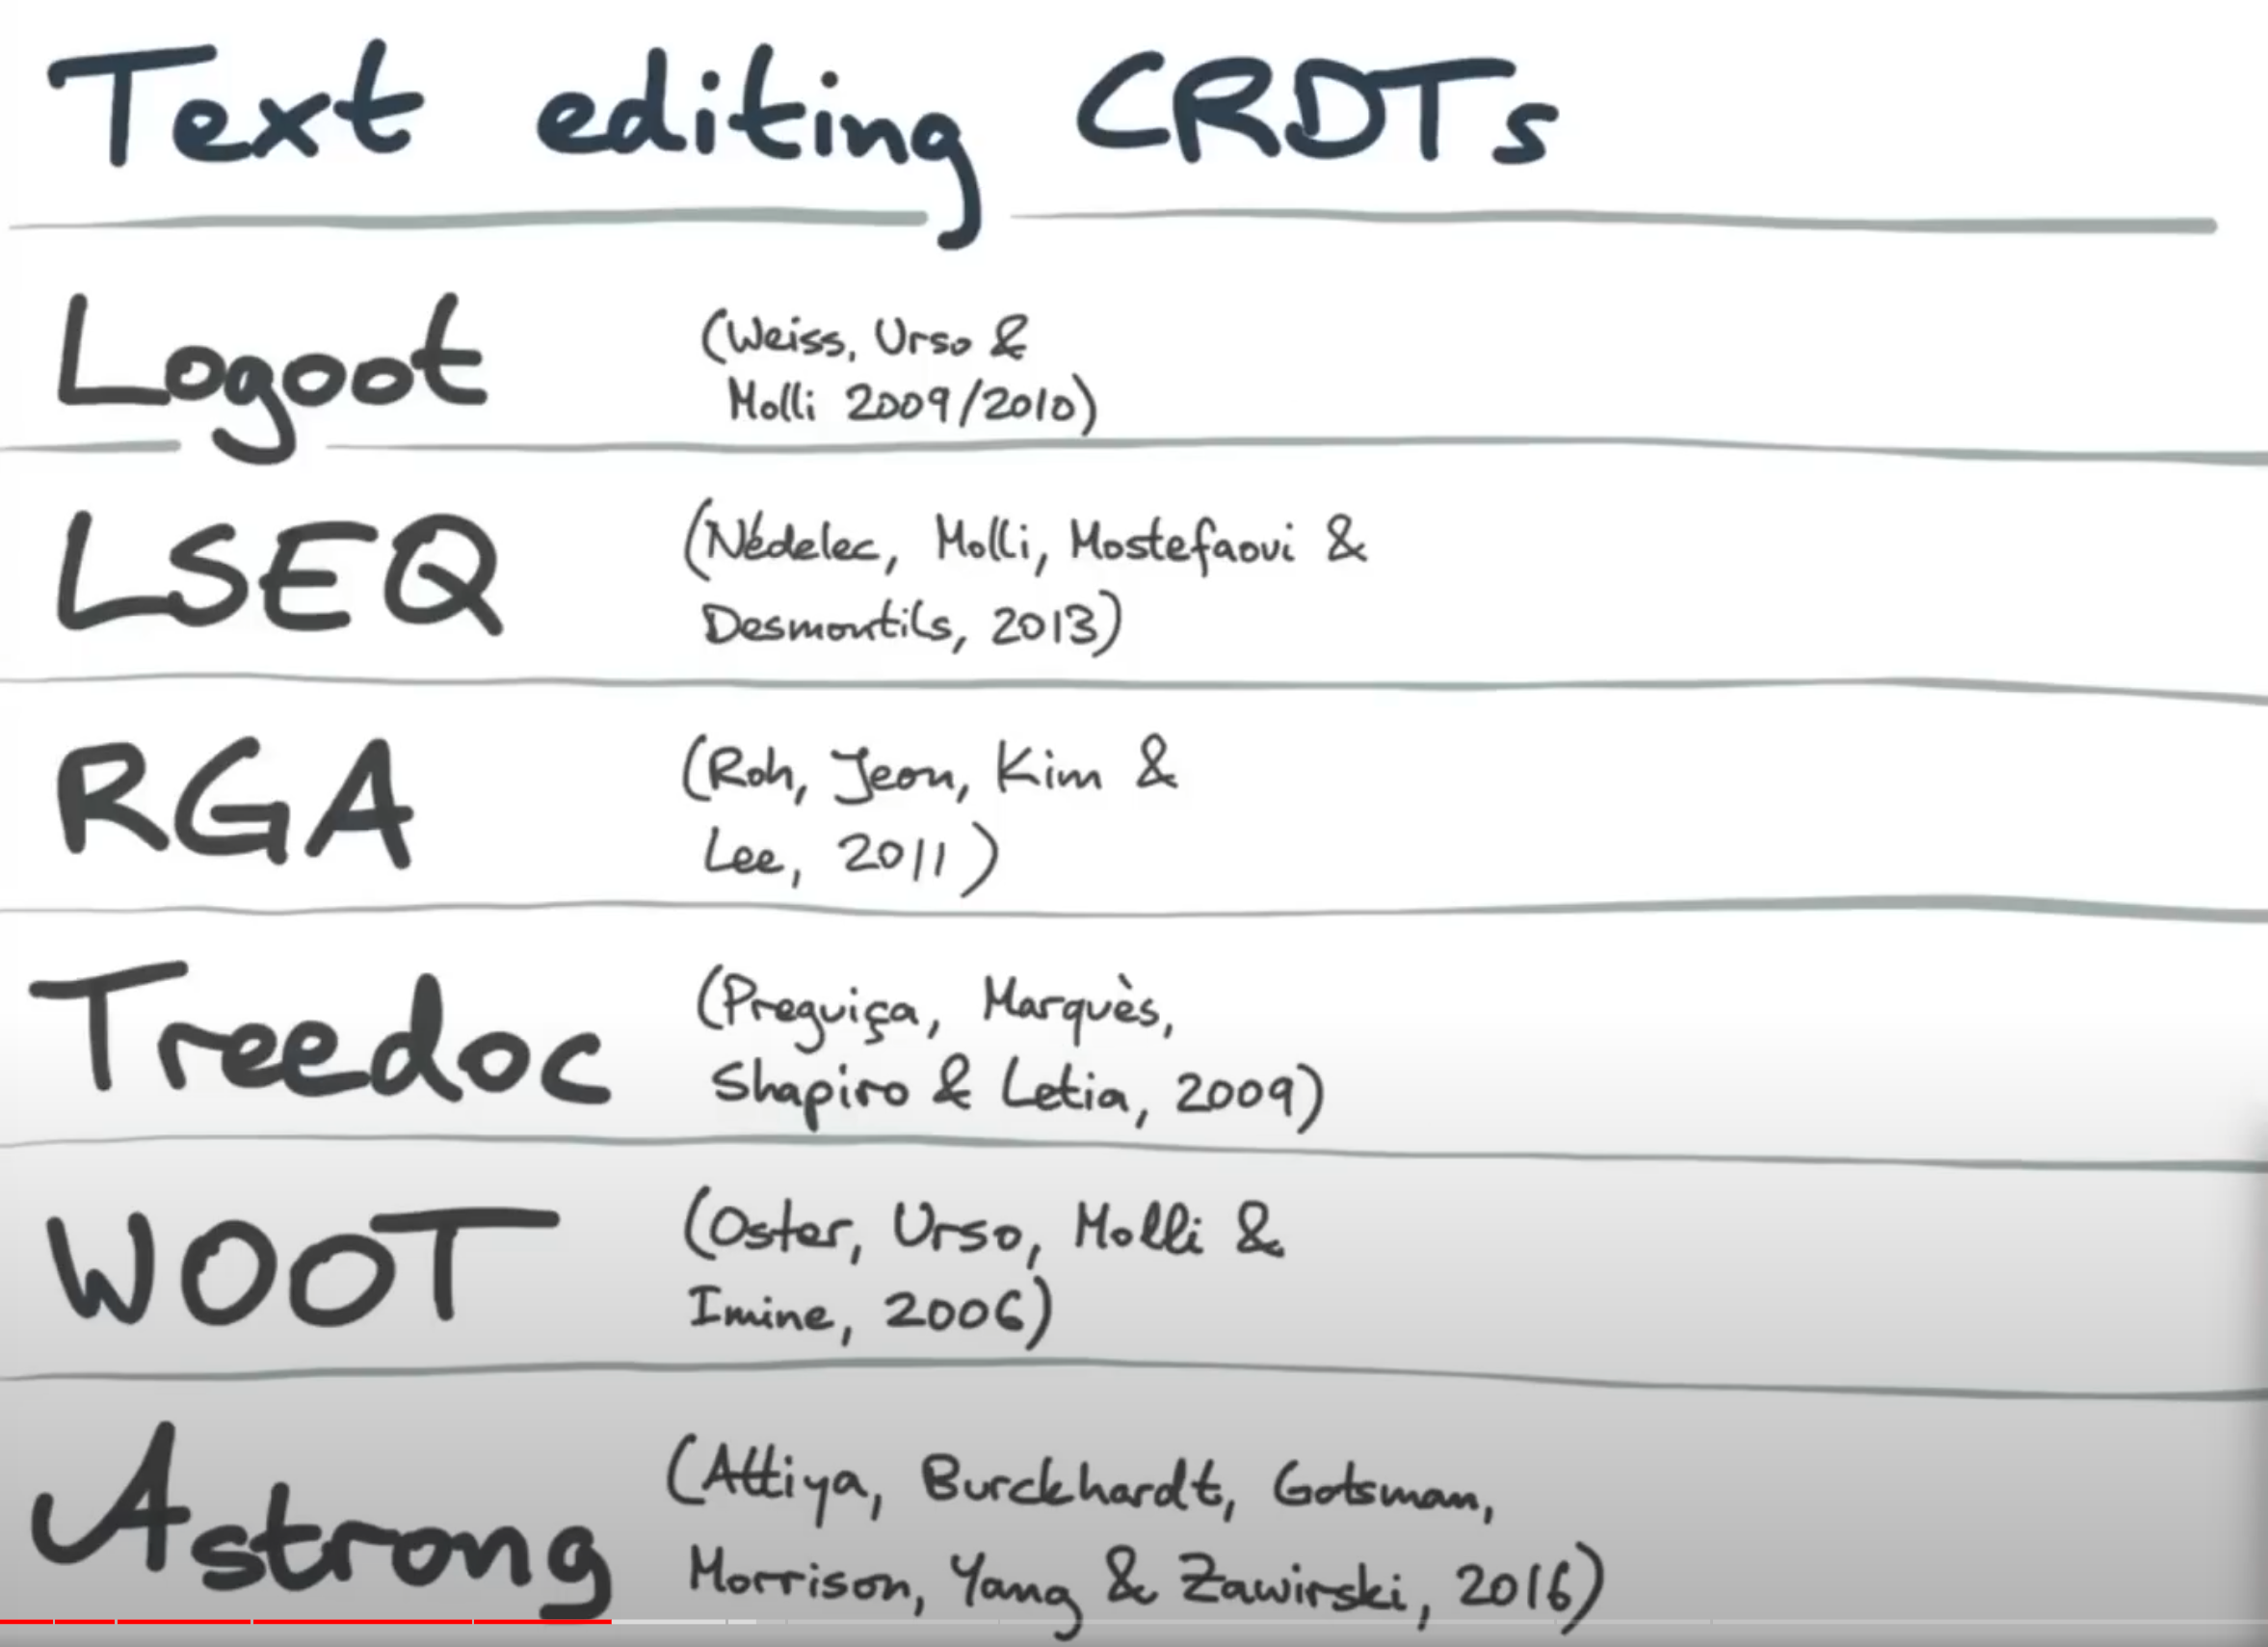 Text editing CRDTs
Logoot
(Weiss, Urso &
Molli 2009/2010)
LSEQ
(Nédelec, Molli, Mostefaoui &
Desmontils, 2013)
RGA
(Roh, Jeon, Kim &
Lee, 2011)
Treedoc
(Preguiça, Marquès,
Shapiro & Letia, 2009)
WOOT
(Oster, Urso, Molli &
Imine, 2006)
Astrong
(Attiya, Burckhardt, Gotsman,
Morrison, Yang & Zawirski, 2016)